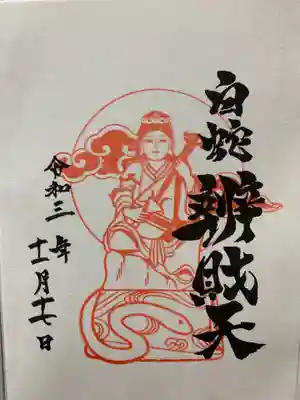 白蛇辨財天
令和三年
十二月十七日